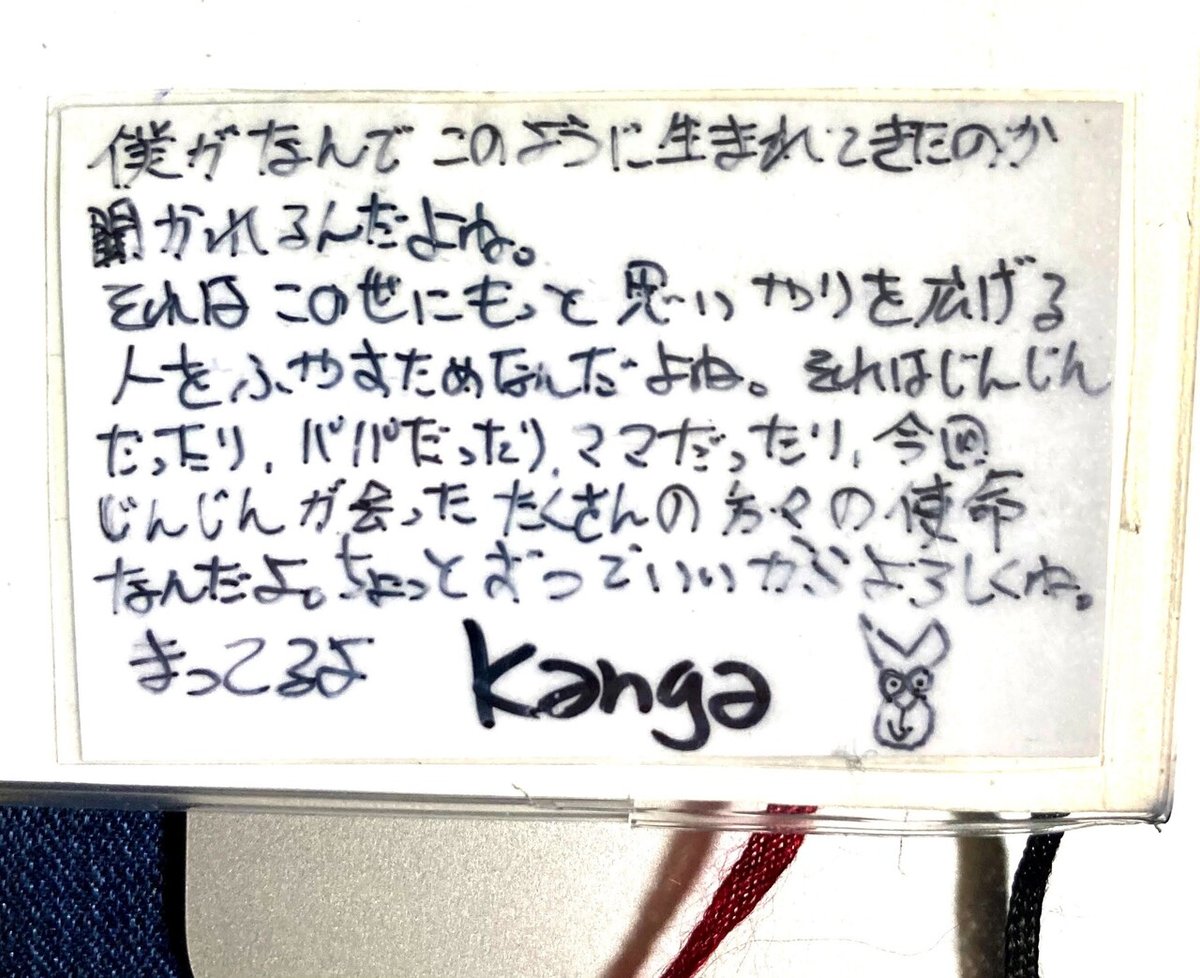 僕がなんでこのように生まれてきたのか
聞かれるんだよね。
それはこの世にもっと思いやりを広げる
人をふやすためなんだよね。それはじんじん
だったり、パパだったり、ママだったり、今回
じんじんが会ったたくさんの方々の使命
なんだよ。ちょっとずつでいいからよろしくね。
まってるよ kanga